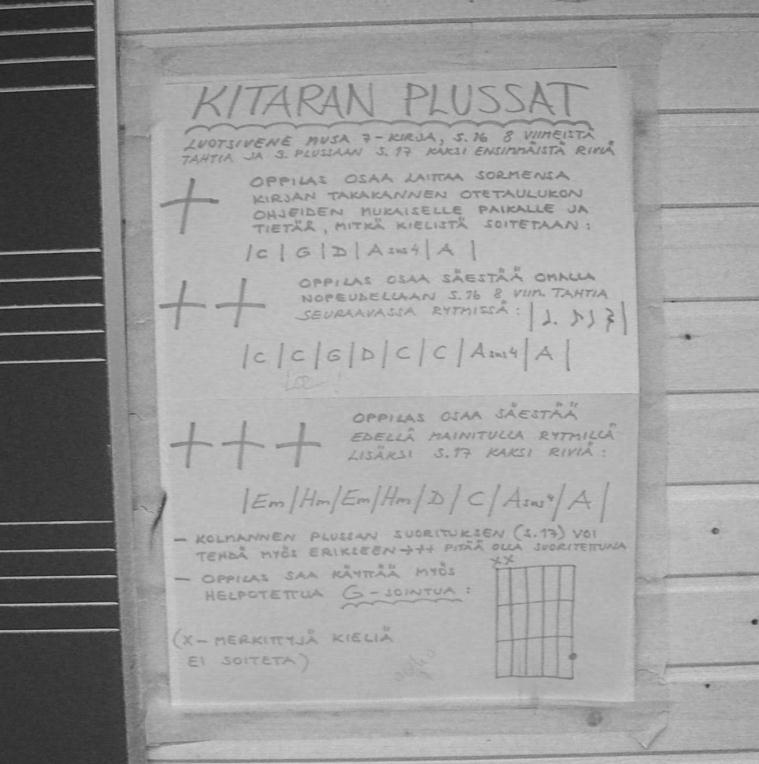 KITARAN PLUSSAT
LUOTSIVENE MUSA 7-KIRJA, S.16 8 VIIMEISTÄ
TAHTIA JA 3. PLUSSAAN S.17 KAKSI ENSIMMÄISTÄ RIVIÄ
+ OPPILAS OSAA LAITTAA SORMENSA
KIRJAN TAKAKANNEN OTETAULUKON
OHJEIDEN MUKAISELLE PAIKALLE JA
TIETÄÄ, MITKÄ KIELISTÄ SOITETAAN:
|C|G|D|Asus4|A|
++ OPPILAS OSAA SÄESTÄÄ OMALLA
NOPEUDELLAAN S.16 8 VIIM. TAHTIA
SEURAAVASSA RYTMISSÄ:
|C|C|G|D|C|C|Asus4|A|
+++ OPPILAS OSAA SÄESTÄÄ
EDELLÄ MAINITULLA RYTMILLÄ
LISÄKSI S.17 KAKSI RIVIÄ:
|Em|Hm|Em|Hm|D|C|Asus4|A|
- KOLMANNEN PLUSSAN SUORITUKSEN (S.17) VOI
TEHDÄ MYÖS ERIKSEEN → ++ PITÄÄ OLLA SUORITETTUNA
- OPPILAS SAA KÄYTTÄÄ MYÖS
HELPOTETTUA G-SOINTUA:
XX
(X-MERKITTYJÄ KIELIÄ
EI SOITETA)